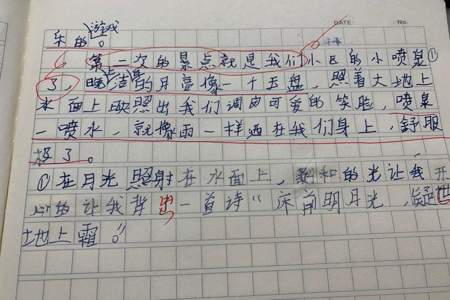 游戏
乐的。
DATE No.
第一次的景点就是我们小区的小喷泉①
了,皎洁的月亮像一个玉盘,照着大地上
水面上映照出我们调皮可爱的笑脸,喷泉
一喷水,就像雨一样洒在我们身上,舒服
极了。
①在月光照射在水面上,柔和的光让我开
心的让我背出一首诗“床前明月光,疑是
地上霜。”